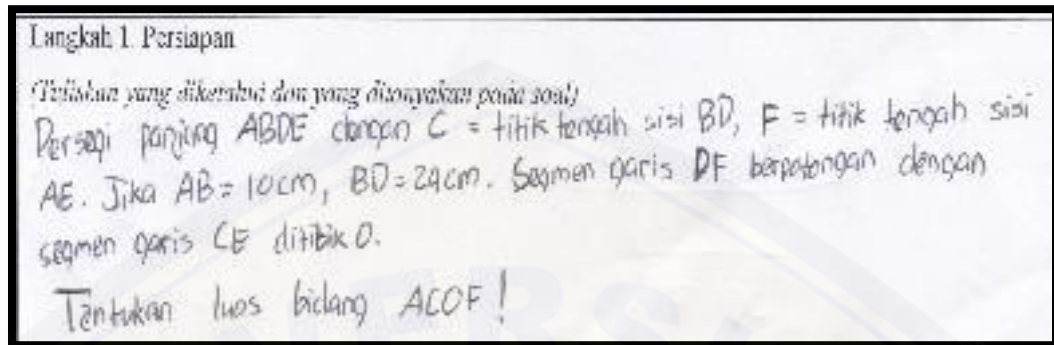 Langkah 1. Persiapan
(Tuliskan yang diketahui dan yang ditanyakan pada soal)
Persegi panjang ABDE dengan C = titik tengah sisi BD, F = titik tengah sisi
AE. Jika AB = 10cm, BD = 24cm. Segmen garis DF berpotongan dengan
segmen garis CE dititik O.
Tentukan luas bidang ACOF!